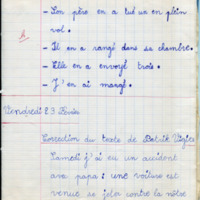 - Son père en a tué un en plein
vol.
- Il en a rangé dans sa chambre.
- Elle en a envoyé trois.
- J'en ai mangé.
Vendredi 23 Février
Correction du texte de Patrick
Samedi j'ai eu un accident
avec papa : une voiture est
venue se jeter contre la nôtre